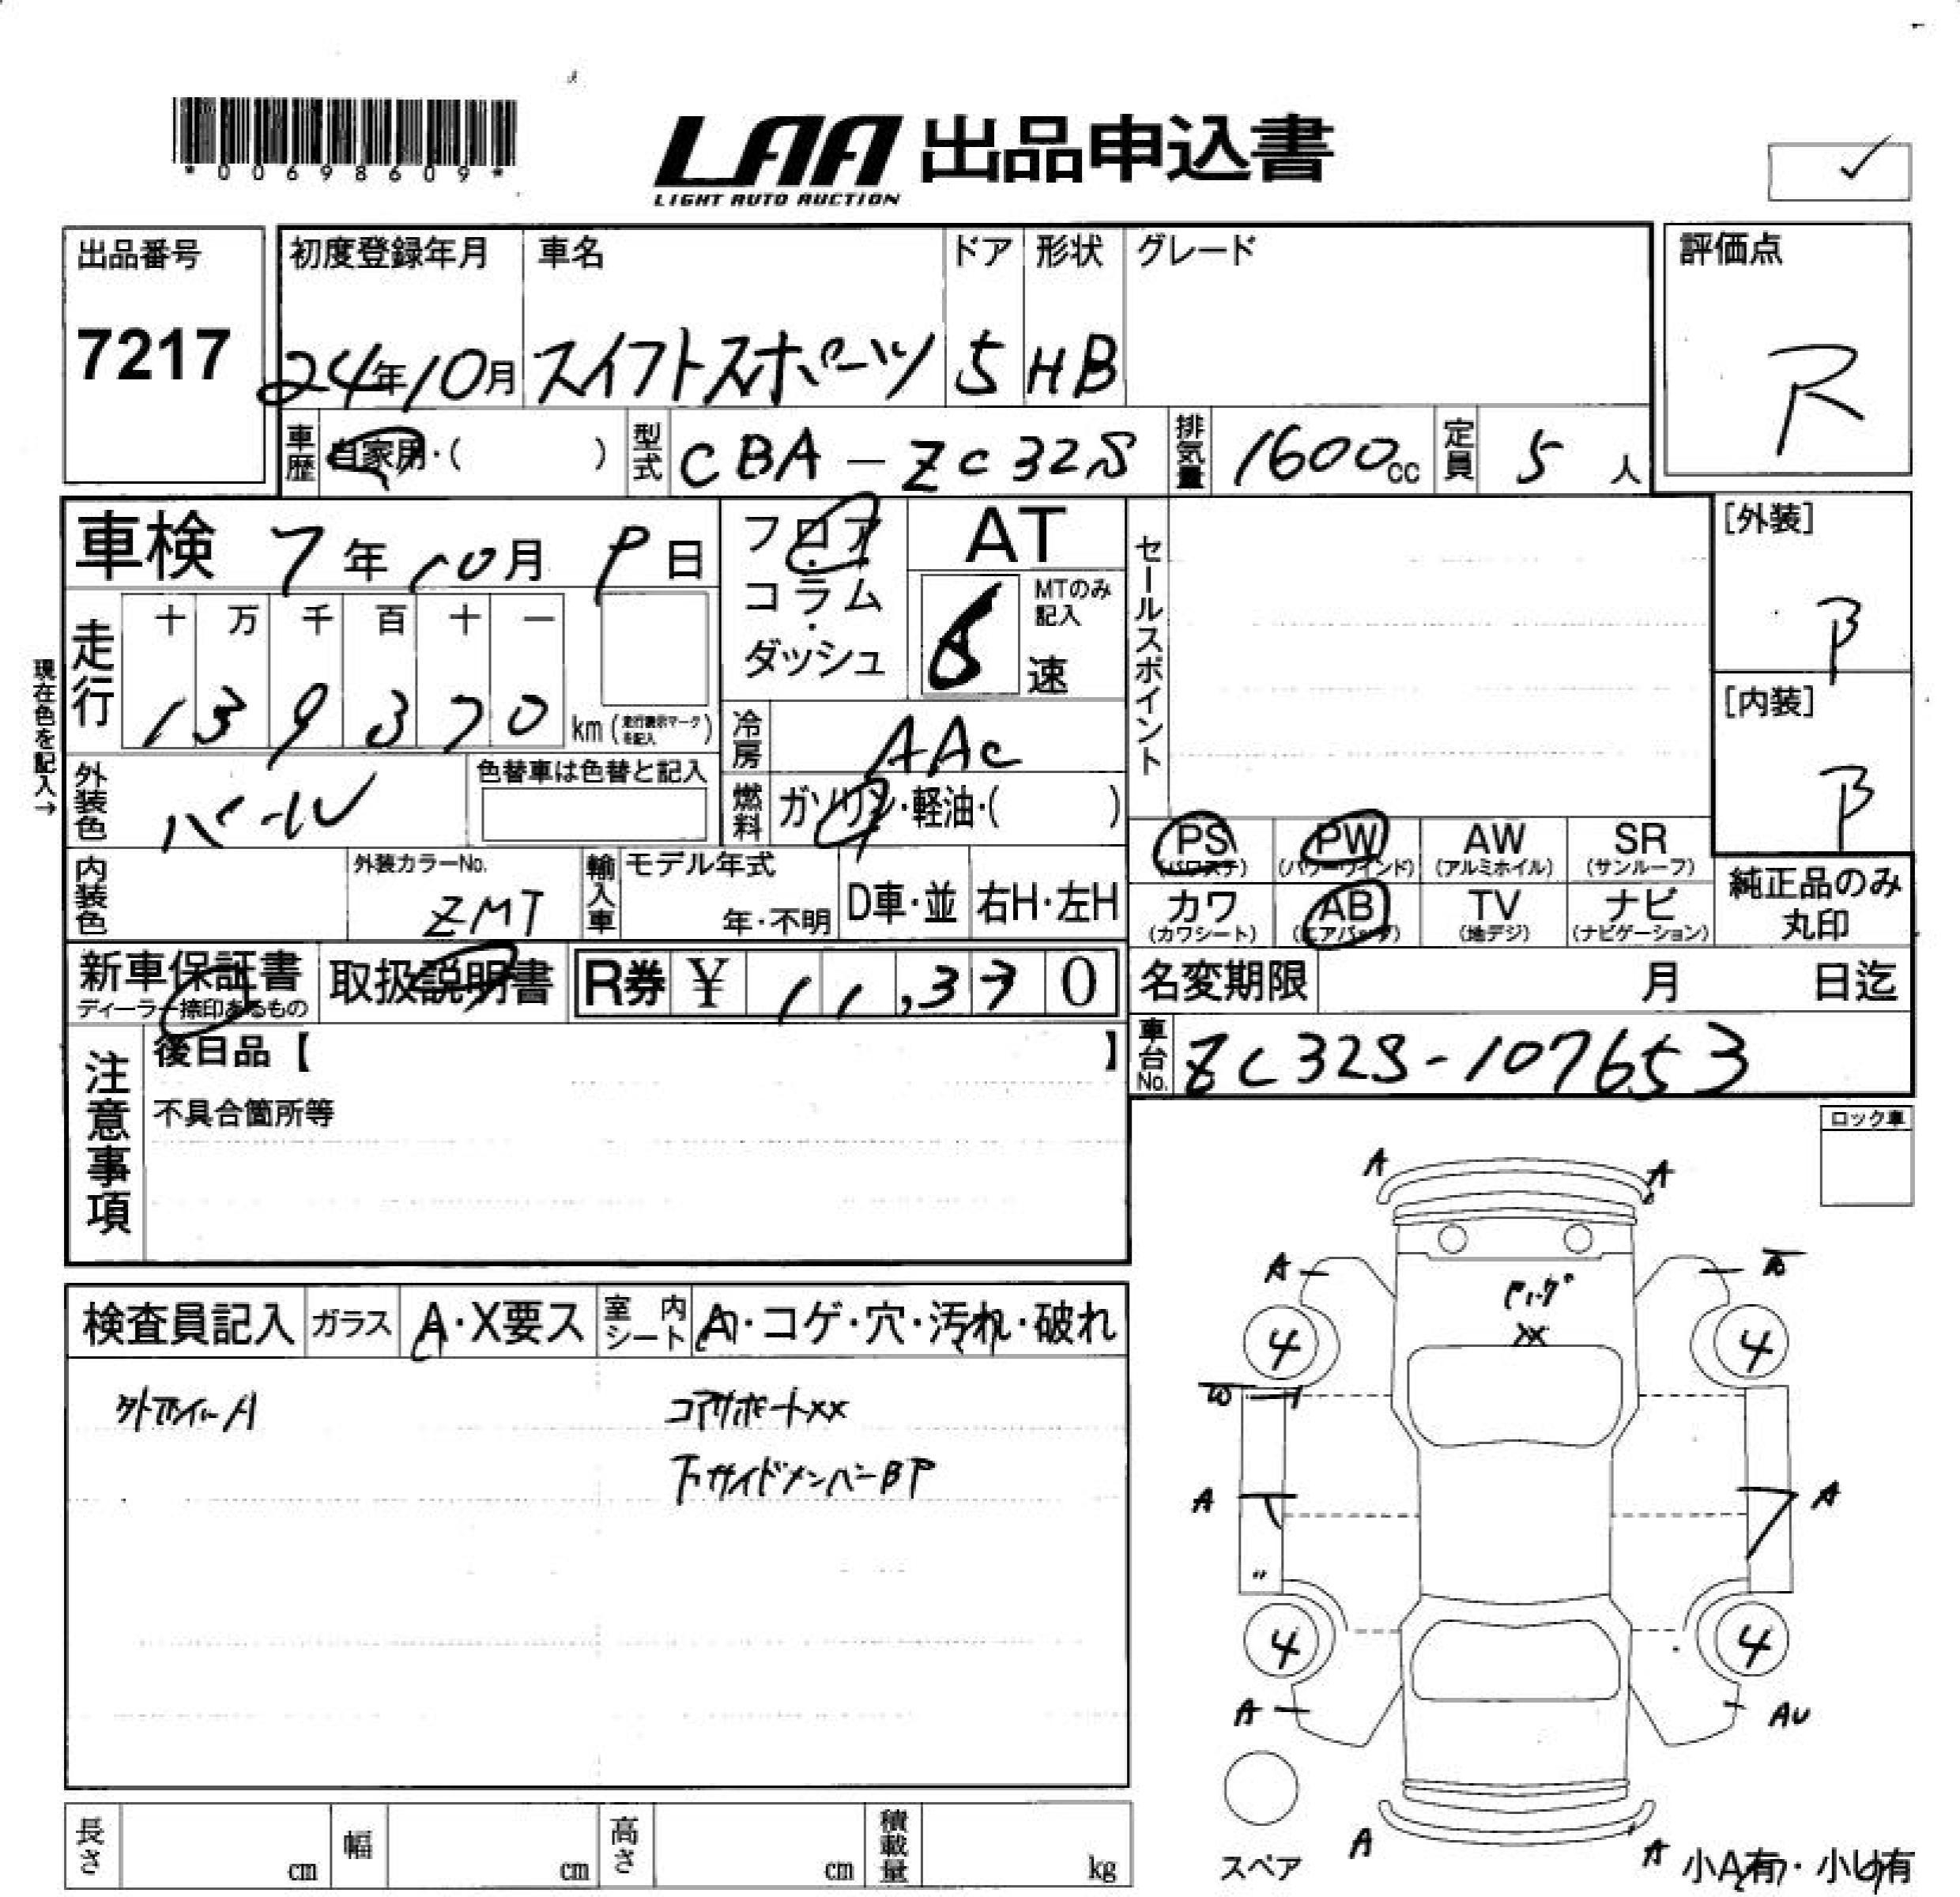 *00698609*
LAA 出品申込書
LIGHT AUTO AUCTION
出品番号
7217
初度登録年月
24年10月
車名
スイフトスポーツ
ドア
5
形状
HB
グレード
評価点
R
車歴
自家用・( )
型式
CBA-ZC32S
排気量
1600cc
定員
5人
車検 7年10月9日
走行
十 万 千 百 十 一
1 3 9 3 7 0 km (走行表示マークを記入)
現在色を記入→
外装色
パール
色替車は色替と記入
内装色
外装カラーNo.
ZMT
輸入車
モデル年式
年・不明
D車・並
右H・左H
フロア
・
コラム
・
ダッシュ
AT
6速
MTのみ記入
冷房
AAC
燃料
ガソリン・軽油・( )
セールスポイント
[外装]
B
[内装]
B
PS (パワステ)
PW (パワーウインド)
AW (アルミホイル)
SR (サンルーフ)
カワ (カワシート)
AB (エアバッグ)
TV (地デジ)
ナビ (ナビゲーション)
純正品のみ丸印
新車保証書
ディーラー捺印あるもの
取扱説明書
R券 ¥ 11,330
名変期限 月 日迄
車台No.
ZC32S-107653
注意事項
後日品【 】
不具合箇所等
ロック車
検査員記入
ガラス
A・X要ス
室内シート
A・コゲ・穴・汚れ・破れ
A
コアサポートXX
下サイドメンバーBP
A A
A
XX
4 4
A A
〃
4 4
A AU
スペア
A A
小A有・小U有
長さ cm
幅 cm
高さ cm
積載量 kg